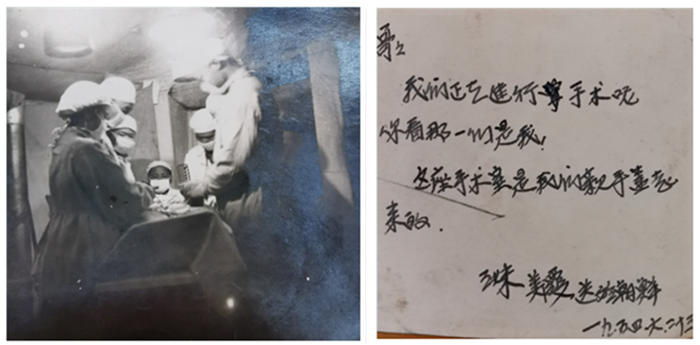 哥々
我们正在进行手术呢
你看那一个是我!
这座手术室是我们亲手盖起
来的.
美爱 朝鲜
一九五四.六.二十三